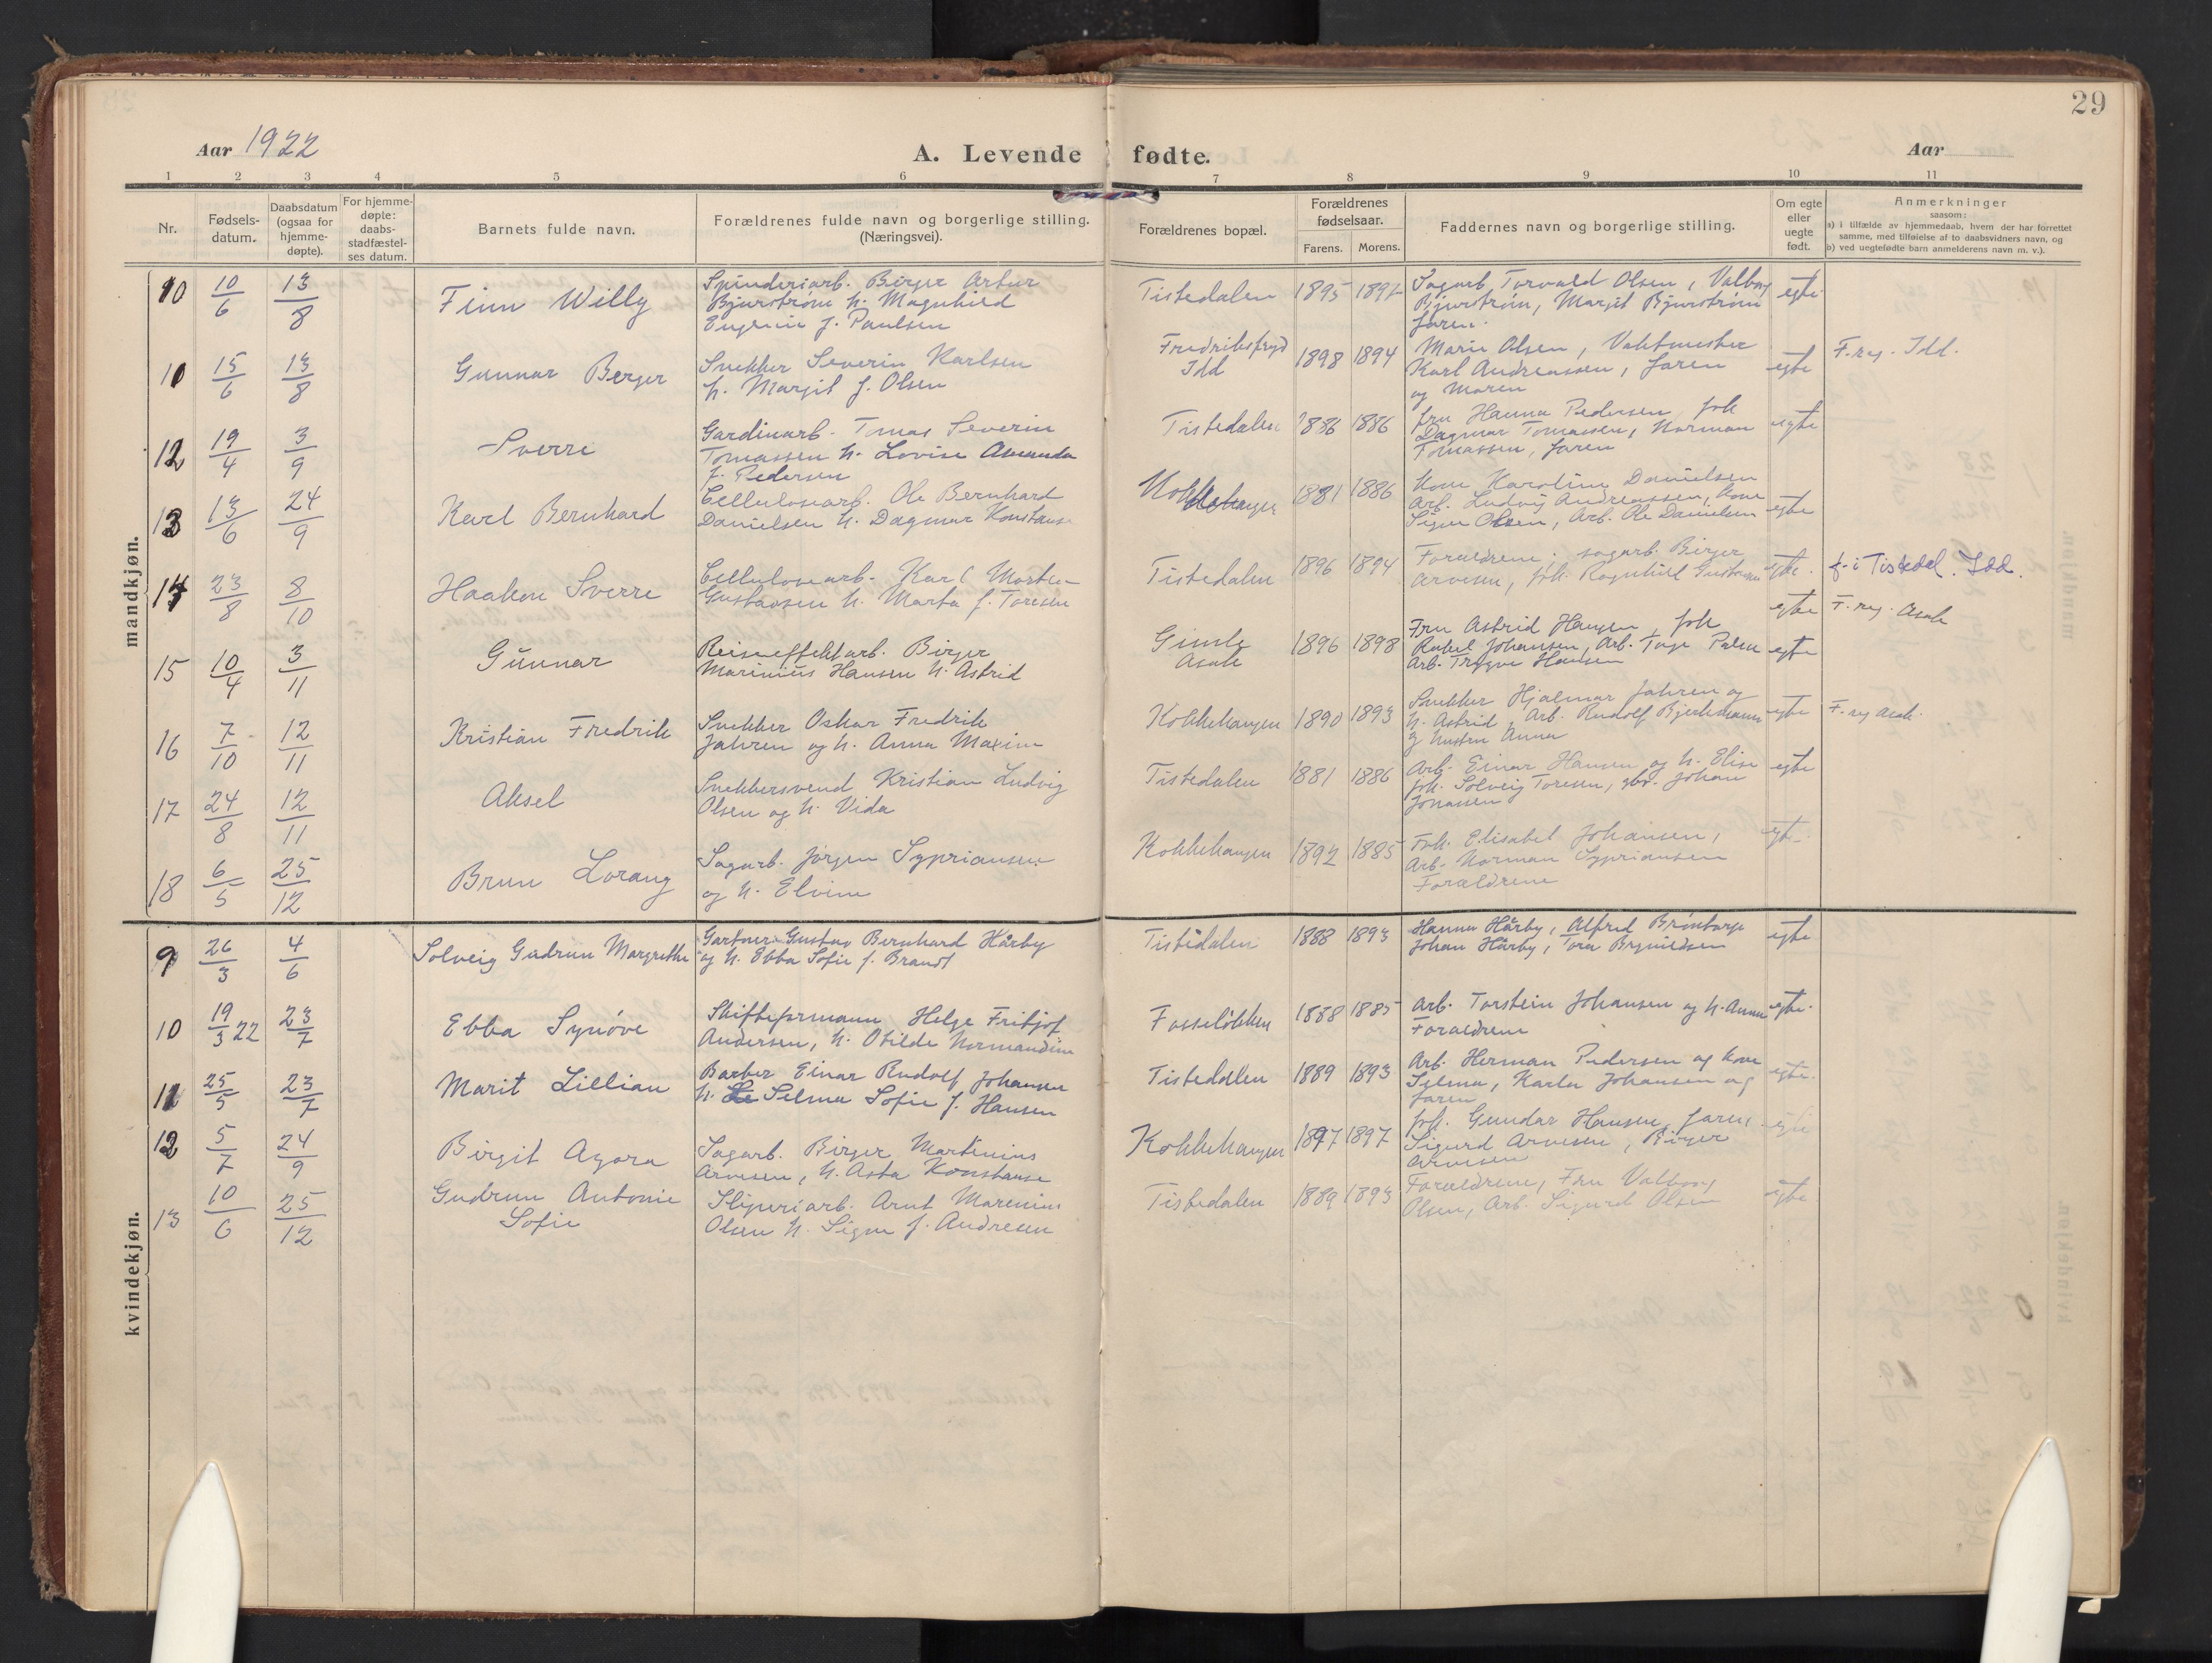 29
Aar 1922
A. Levende fødte.
Aar
1 2 3 4 5 6 7 8 9 10 11
Nr.
Fødsels-
datum.
Daabsdatum
(ogsaa for
hjemme-
døpte).
For hjemme-
døpte:
daabs-
stadfæstel-
ses datum.
Barnets fulde navn.
Forældrenes fulde navn og borgerlige stilling.
(Næringsvei).
Forældrenes bopæl.
Forældrenes
fødselsaar.
Farens. Morens.
Faddernes navn og borgerlige stilling.
Om egte
eller
uegte
født.
Anmerkninger
saasom:
a) i tilfælde av hjemmedaab, hvem der har forrettet
samme, med tilføielse af to daabsvidners navn, og
b) ved uegtefødte barn anmelderens navn m. v.).
mandkjøn.
10 10/6 13/8 Finn Willy
Spinderiarb. Birger Artur
Bjurstrøm h. Magnhild
Eugenie f. Paulsen
Tistedalen 1895
Sagarb Torvald Olsen, Valborg
Bjurstrøm, Margit Bjurstrøm
faren.
egte
15/6 13/8 Gunnar Berger
Snekker Severin Karlsen
h. Margit f. Olsen
Fredriksfryd
Idd
1898 1894
Marie Olsen, Vaktmester
Karl Andreassen, faren
og Moren
egte
F. reg. Idd.
12 19/4 3/9 Sverre
Gardinarb. Tomas Severin
Tomassen h. Lovise Amanda
f. Pedersen
Tistedalen 1886 1886
fru Hanna Pedersen, frk
Dagmar Tomassen, Norman
Tomassen, faren
egte
13 13/6 24/9 Karl Bernhard
Cellulosearb. Ole Bernhard
Danielsen h. Dagmar Konstanse
1881 1886
Kone Karoline Danielsen
Arb. Ludvig Andreassen, Kone
Signe Olsen, Arb. Ole Danielsen
egte
14 23/8 8/10 Haakon Sverre
Cellulosearb. Karl Morten
Gustavsen h. Marta f. Toresen
Tistedalen 1896 1894
Forældrene, sagarb. Birger
Arvesen, frk. Ragnhild Gustavsen
egte.
f. i Tistedal. Idd.
egte F. reg. Asak
15 10/4 3/11 Gunnar
Reiseeffektarb. Birger
Marinius Hansen h. Astrid
Gimle
Asak
1896 1898
Fru Astrid Hansen, frk
Rakel Johansen, Arb. Tage
Arb. Trygve Hansen
egte
16 7/10 12/11 Kristian Fredrik
Snekker Oskar Fredrik
Jahren og h. Anna Maxine
Kokkehaugen 1890 1893
Snekker Hjalmar Jahren og
h. Astrid, Arb. Rudolf
og hustru Anna
egte
F. reg Asak.
17 24/8 12/11 Aksel
Snekkersvend Kristian Ludvig
Olsen og h. Vida
Tistedalen 1881 1886
Arb. Einar Hansen og h. Elise
frk. Solveig Toresen, gbr. Johan
Jonassen
egte
18 6/5 25/12 Brun Lorang
Sagarb. Jørgen Sypriansen
og h. Elvine
Kokkehaugen 1892 1885
Frk. Elisabet Johansen,
Arb. Norman Sypriansen
Forældrene
egt.
kvindekjøn.
9 26/3 4/6 Solveig Gudrun Margrethe
Gartner Gustav Bernhard Hårby
og h. Ebba Sofie f. Brandt
Tistedalen 1888 1893
Hanna Hårby, Alfred
Johan Hårby, Tora Brynildsen
egte
10 19/3 22 23/7 Ebba Synöve
Skifteformann Helge Fritjof
Andersen, h. Otilde Normandine
Fosseløkken 1888 1885
Arb. Torstein Johansen og h. Anna
Forældrene
egte.
11 25/5 23/7 Marit Lillian
Barber Einar Rudolf Johansen
h. Selma Sofie f. Hansen
Tistedalen 1889 1893
Arb. Herman Pedersen og kone
Selma, Karla Johansen og
faren
egte.
12 5/7 24/9 Birgit Agora
Sagarb. Birger Martinius
Arvesen, h. Asta Konstanse
Kokkehaugen 1897 1897
frk. Gunda Hansen, faren
Sigurd Arvesen, Birger
Arvesen
egte
13 10/6 25/12 Gudrun Antonie
Sofie
Sliperiarb. Arnt Marenius
Olsen h. Signe f. Andresen
Tistedalen 1889 1893
Forældrene, Fru Valborg
Olsen, Arb. Sigurd Olsen
egte